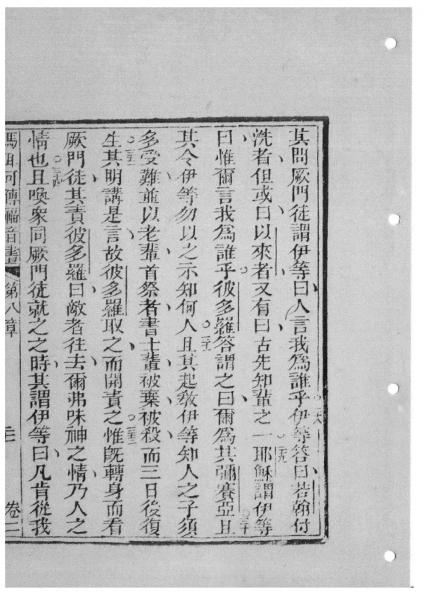 其問厥門徒謂伊等曰人言我爲誰乎伊等答曰若翰付
二八
洗者但或曰以來者又有曰古先知輩之一耶穌謂伊等
二九
曰惟爾言我爲誰乎彼多羅答謂之曰爾爲其彌賽亞且
三十
其令伊等勿以之示知何人且其起敎伊等知人之子須
三一
多受難並以老輩首祭者書士輩被棄被殺而三日後復
生其明講是言故彼多羅取之而開責之惟旣轉身而看
三二
三三
厥門徒其責彼多羅曰敵者往去爾弗味神之情乃人之
情也且喚衆同厥門徒就之之時其謂伊等曰凡肯從我
三四
馬耳可傳福音書
第八章
卷二